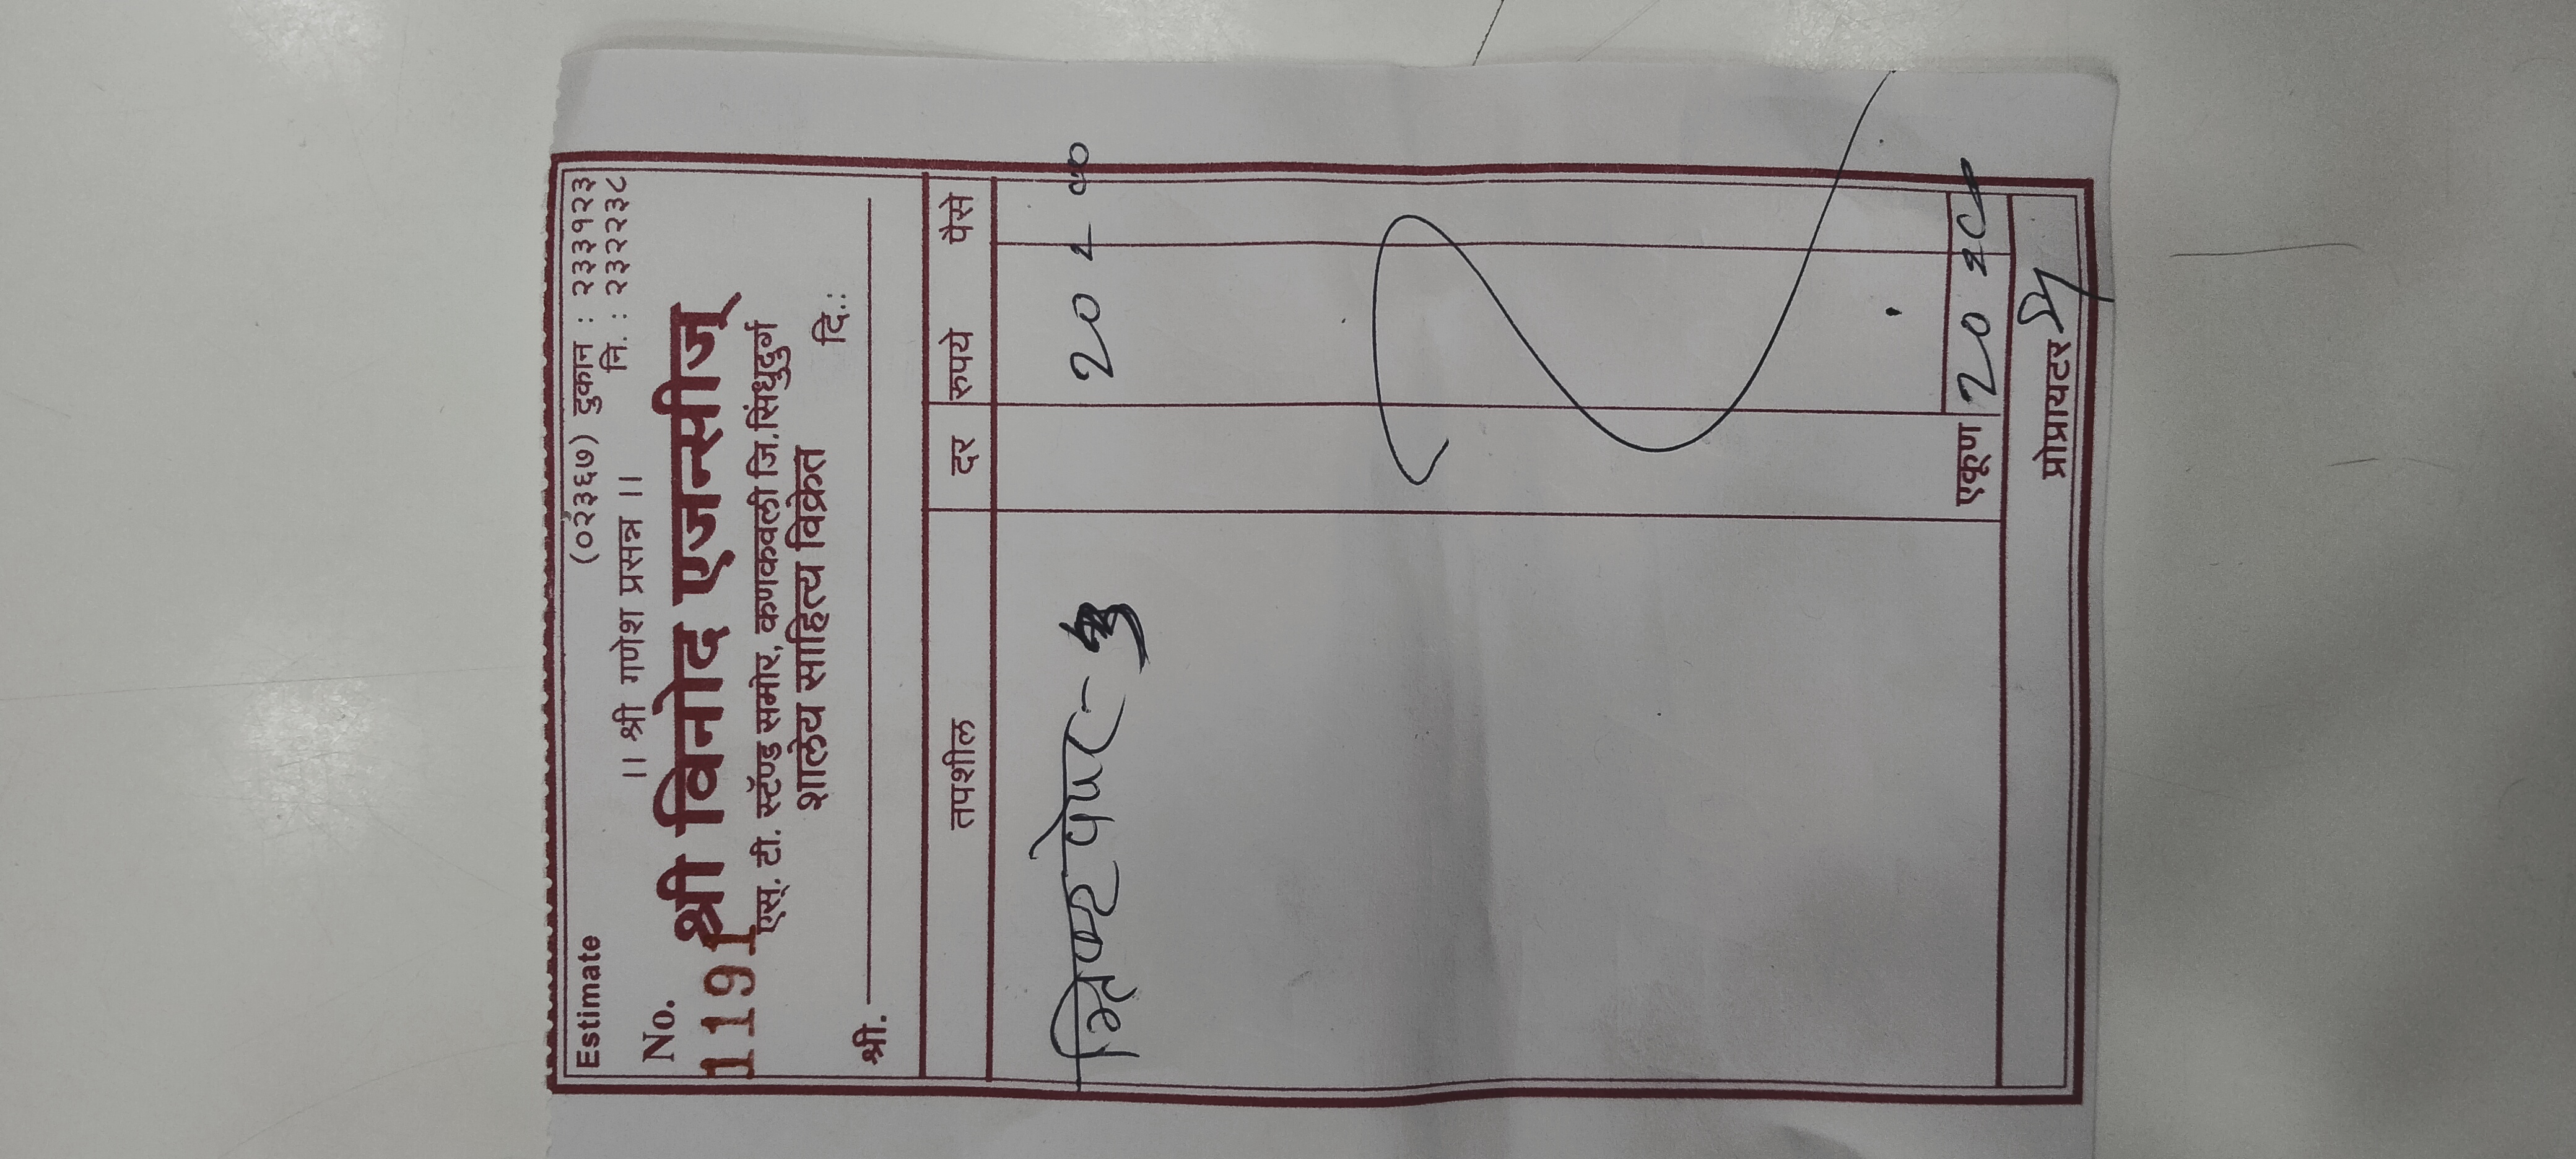 Estimate (०२३६७) दुकान : २३३१२३
नि. : २३२२३८
।। श्री गणेश प्रसन्न ।।
No.
1191
श्री विनोद एजन्सीज्
एस्. टी. स्टॅण्ड समोर, कणकवली जि.सिंधुदुर्ग
शालेय साहित्य विक्रेते
दि.:
श्री.
तपशील दर रुपये पैसे
प्रिण्ट पेपर - 20 = 00
एकूण 20 = 00
प्रोप्रायटर